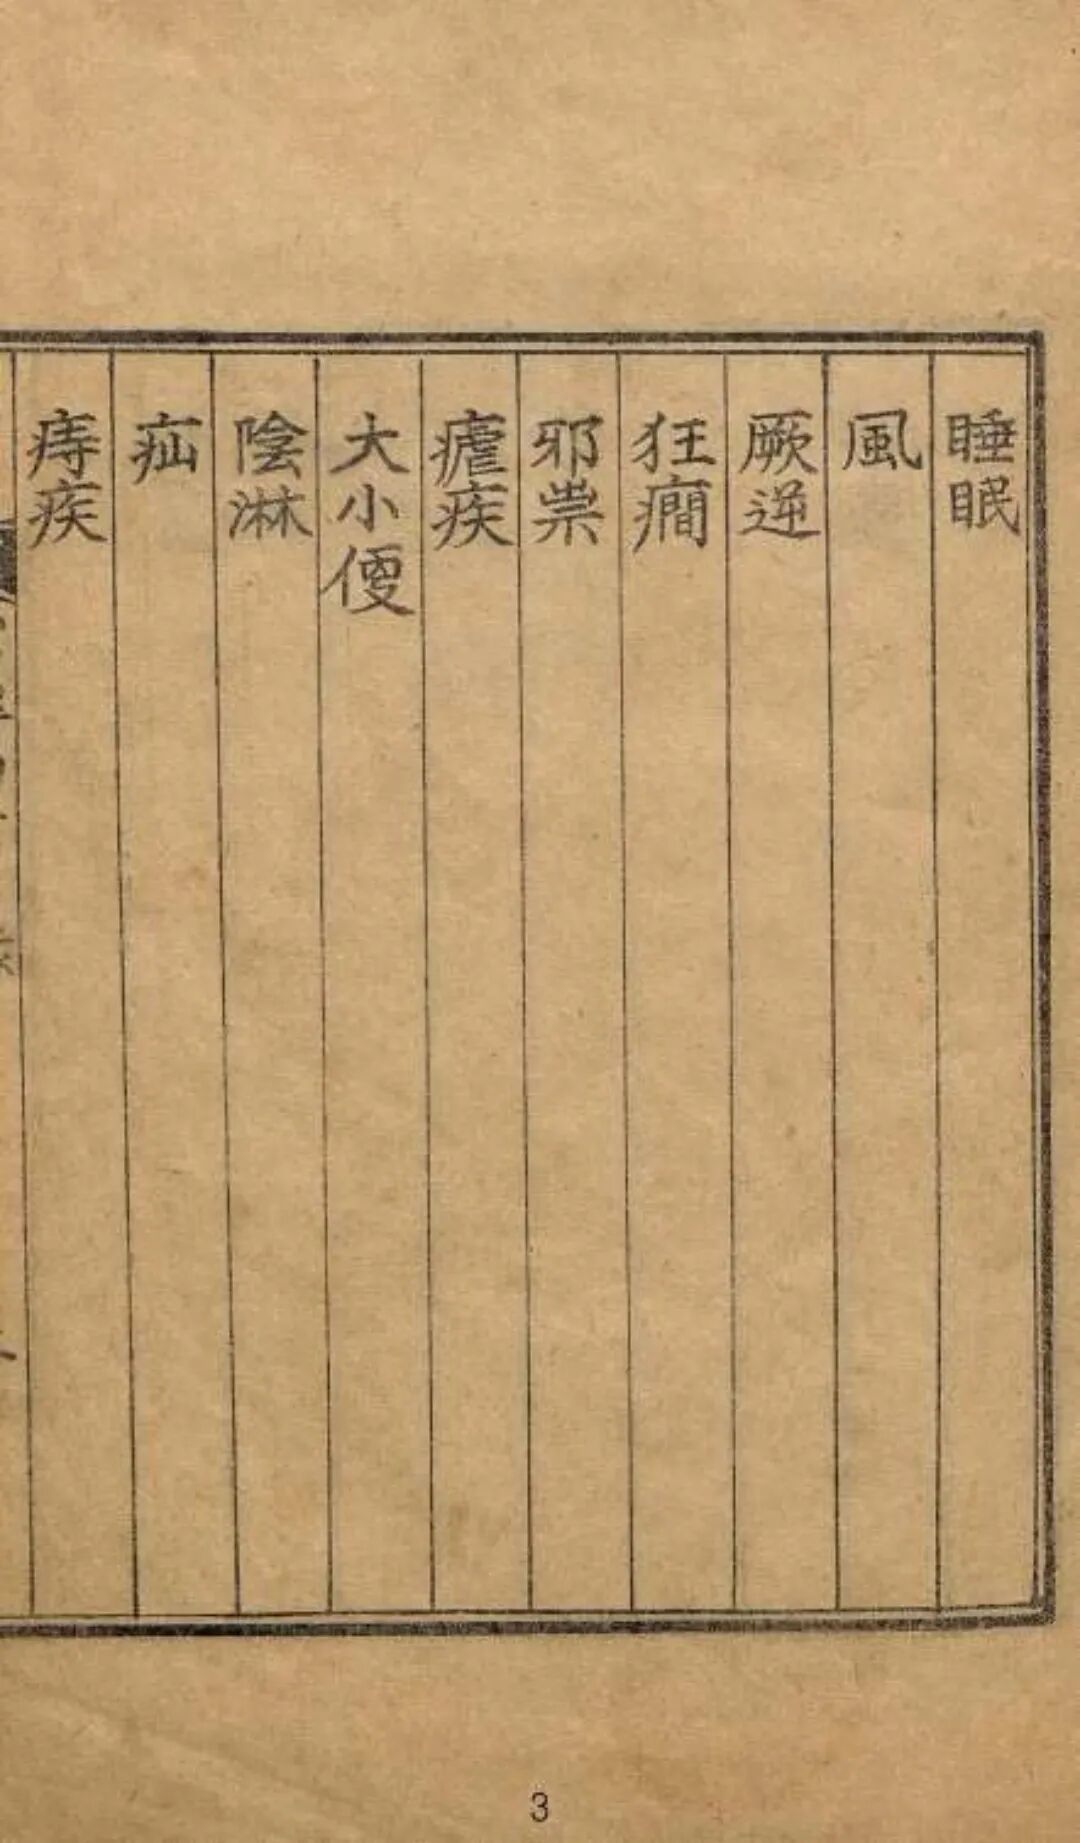 睡眠
風
厥逆
狂癇
邪祟
瘧疾
大小便
陰淋
疝
痔疾
3